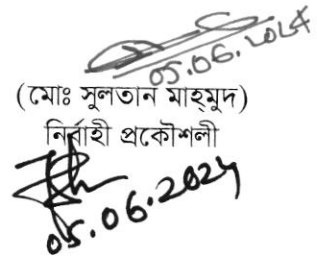 05.06.2024
(মোঃ সুলতান মাহ্‌মুদ)
নির্বাহী প্রকৌশলী
05.06.2024